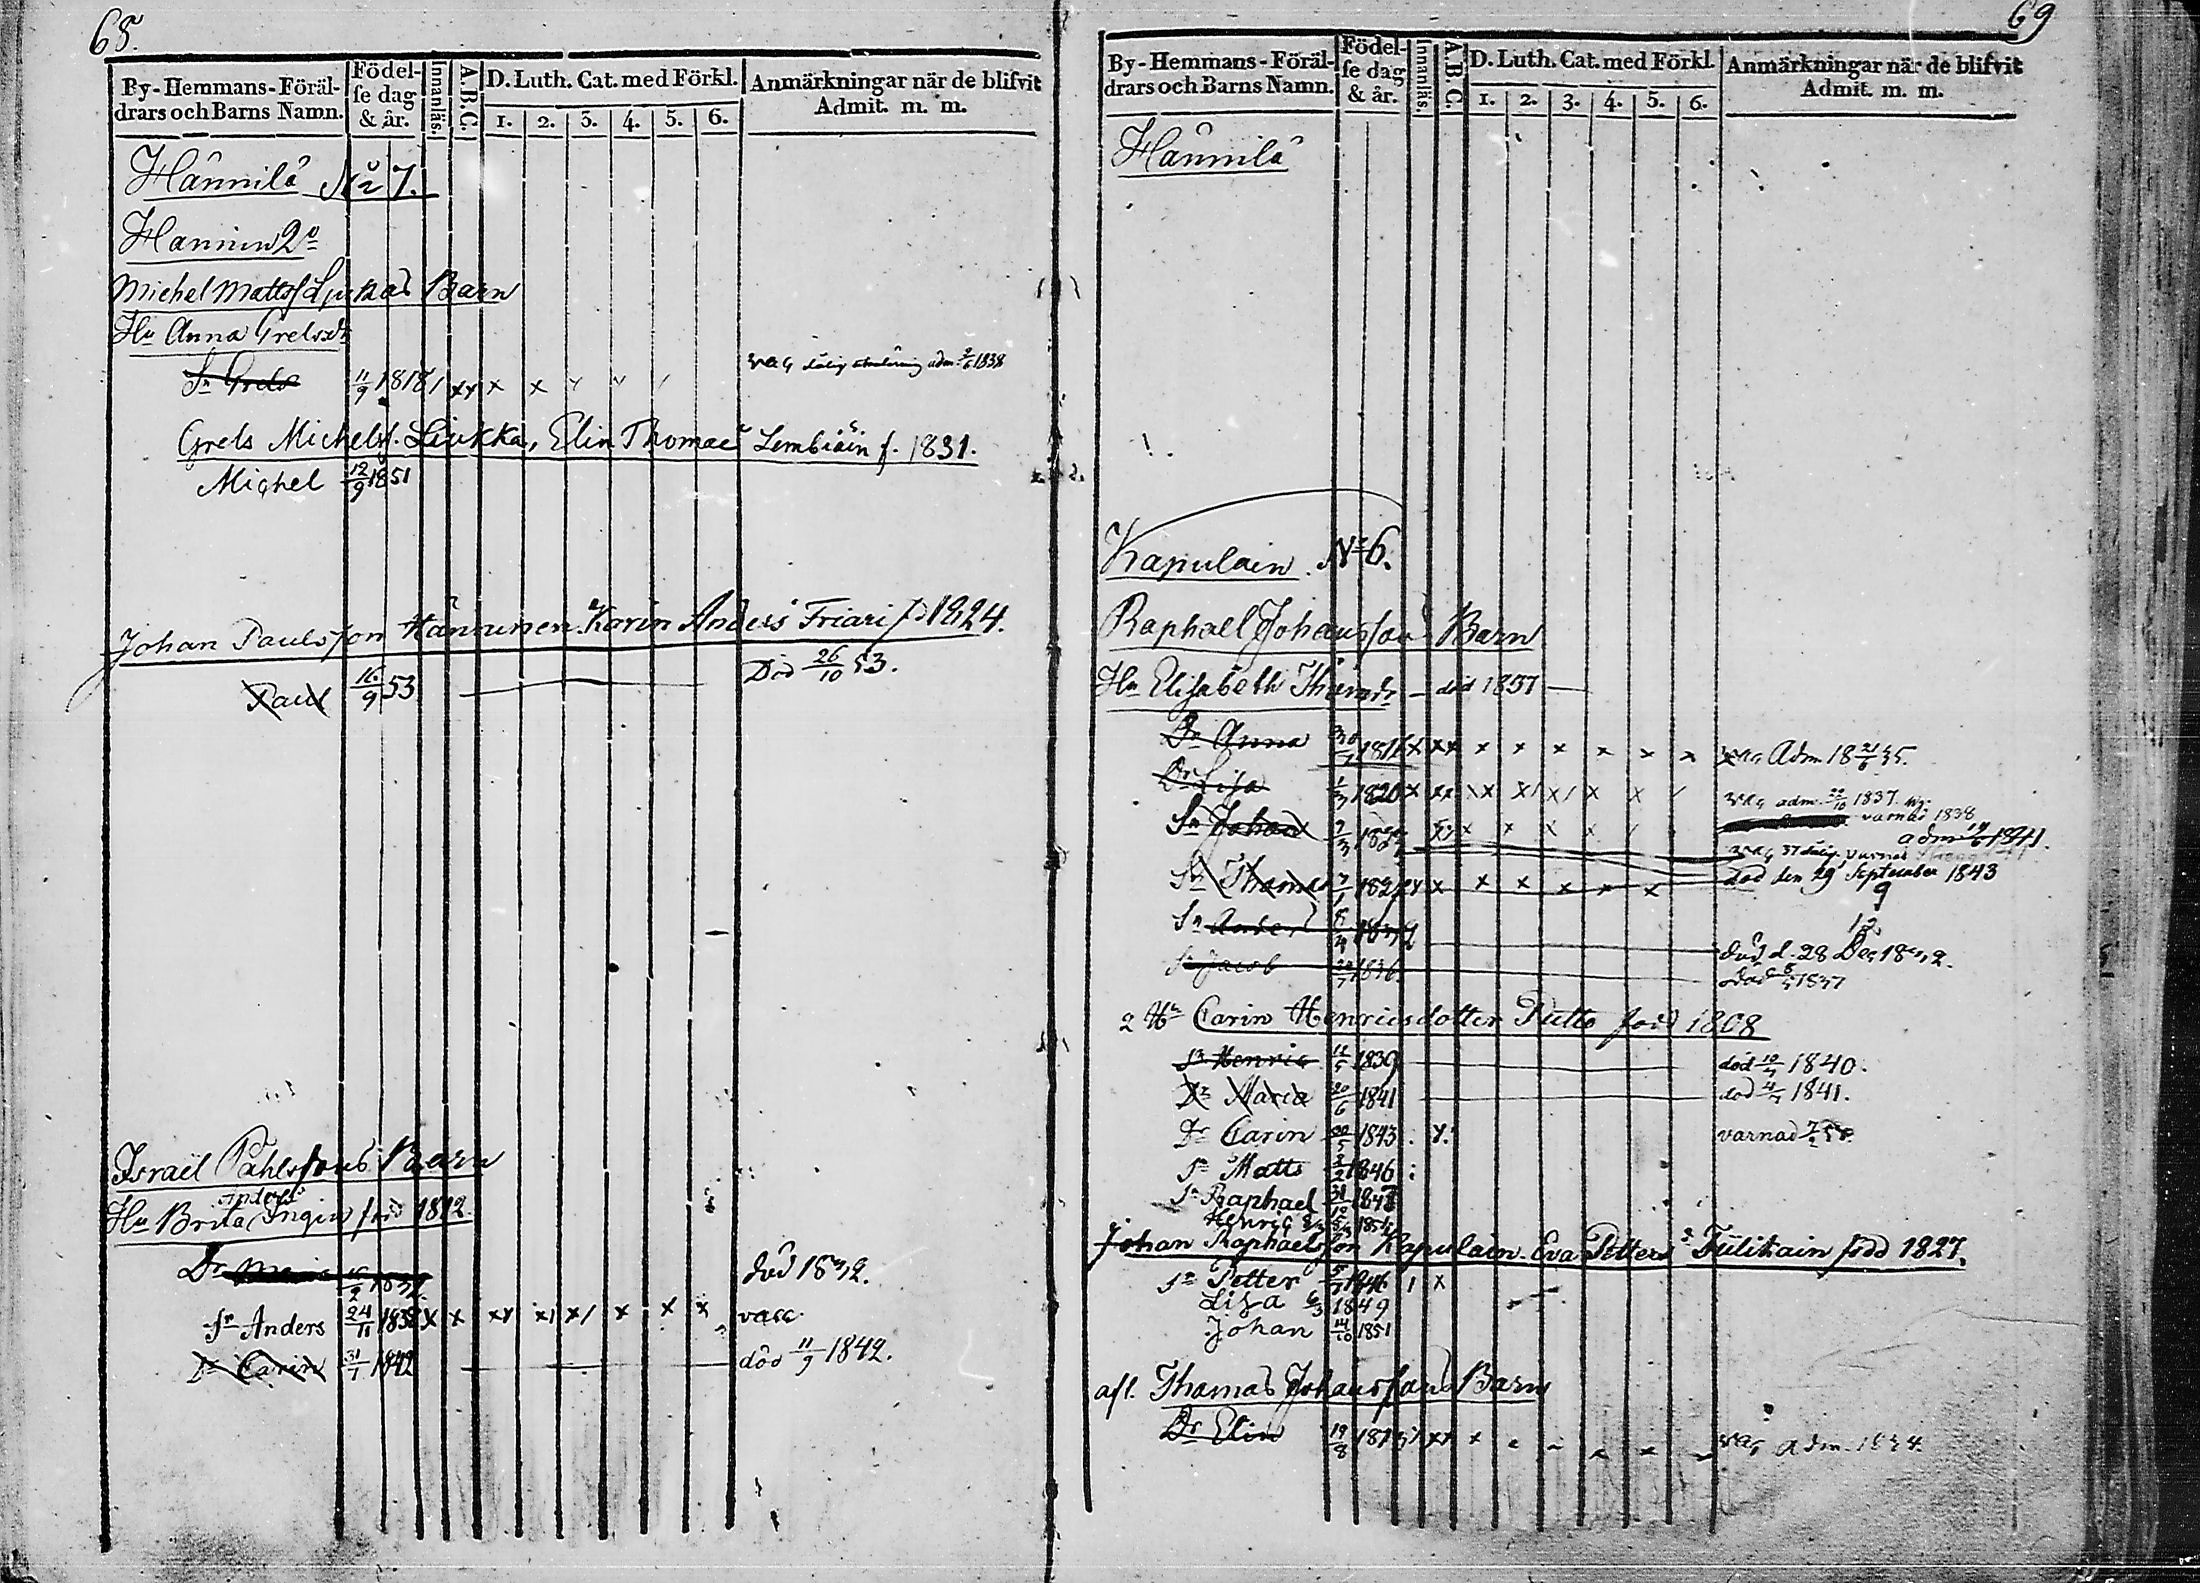 68.
By-Hemmans-Föräl-
drars och Barns Namn.
Födel-
se dag
& år.
Innanläs.
A.B.C.
D. Luth. Cat. med Förkl.
1. 2. 3. 4. 5. 6.
Anmärkningar när de blifvit
Admit. m. m.
Hännilä № 7.
Hannin 2
Michel Mattss Barn
Hu Anna Grelsdr
Sn Grels 11/9 1818 / xx x x
vac adm. 1838
Grels Michelss. Liukka, Elin Thomae Lembiäin f. 1831.
Michel 12/9 1851
Johan Paulsson Hänninen. Karin Anders Friari fd 1824.
Paul 16/9 53 Död 26/10 53.
Israël Påhlssons Barn
Anders
Hu Brita Ingin föd 1812.
Dr död 1832.
Sn Anders 24/11 1838 x x xx x/ x/ x x x vacc
Dr Carin 31/7 1842 död 11/9 1842.
69
By-Hemmans-Föräl-
drars och Barns Namn.
Födel-
se dag
& år.
Innanläs.
A.B.C.
D. Luth. Cat. med Förkl.
1. 2. 3. 4. 5. 6.
Anmärkningar när de blifvit
Admit. m. m.
Hännilä
Kapulain № 6.
Raphael Johanssons Barn
Hu Elisabeth Thomdr – död 1837 –
Dr Anna 1816 x xx x x x x x x vac Adm 18 21/6 35.
Dr Lisa 1820 x xx \x x/ x/ x x / vac adm. 22/10 1837.
Sn Johan xx x x x x varnad 1838
adm 1841.
Sn Thomas x x x x x x död den 29 September 1843
9
12
Sn Anders 1832 död d. 28 Dec 1832.
Sn Jacob 1836 död 1837
2 Hu Carin Henricsdotter Putto född 1808
Sn Henric 1839 död 1840.
Dr Maria 20/6 1841 död 1841.
Dr Carin 1843 x. varnad
Sn Matts 1846
Sn Raphael 31/12 1848
Henric
Johan Raphaelsson Kapulain. Eva Petters Tulikain född 1827.
Sn Petter 1846 / x
Lisa 6/3 1849
Johan 14/10 1851
afl. Thomas Johanssons Barn
Dr Elin 19/8 vac adm. 1834.